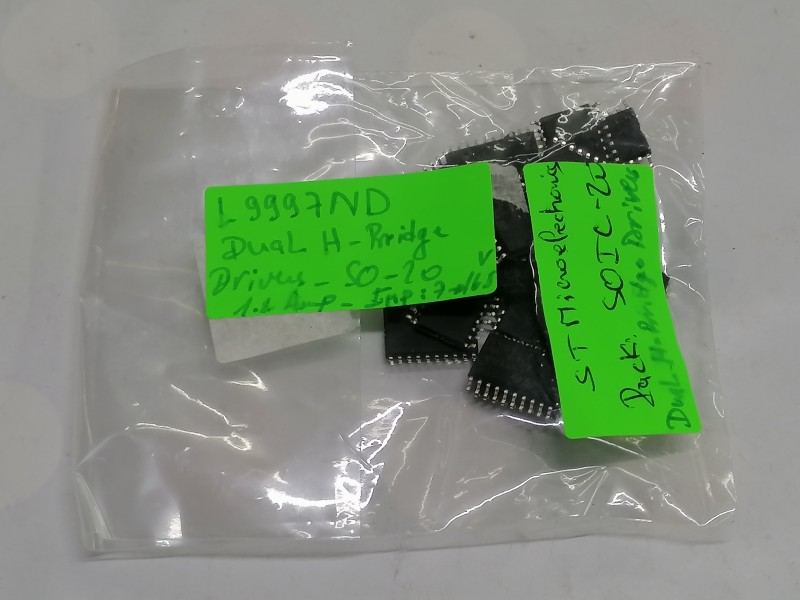 L9997ND
Dual H-Bridge
Driver - SO-20
1.2 Amp - Inp: 7 to 16.5 V
ST Microelectronics
Pack: SOIC-20
Dual H-Bridge Driver